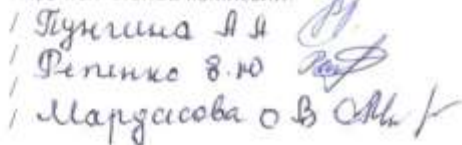 Пунгина А А
Репенко З.Ю
Мардасова О В